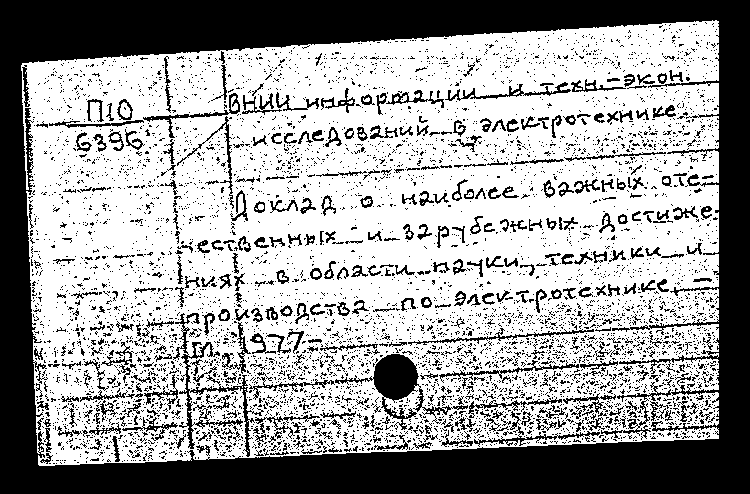 П10
6396
ВНИИ информации и техн.-экон.
исследований в электротехнике
Доклад о наиболее важных оте-
чественных и зарубежных достиже-
ниях в области науки, техники и
производства по электротехнике. –
М., 1977–